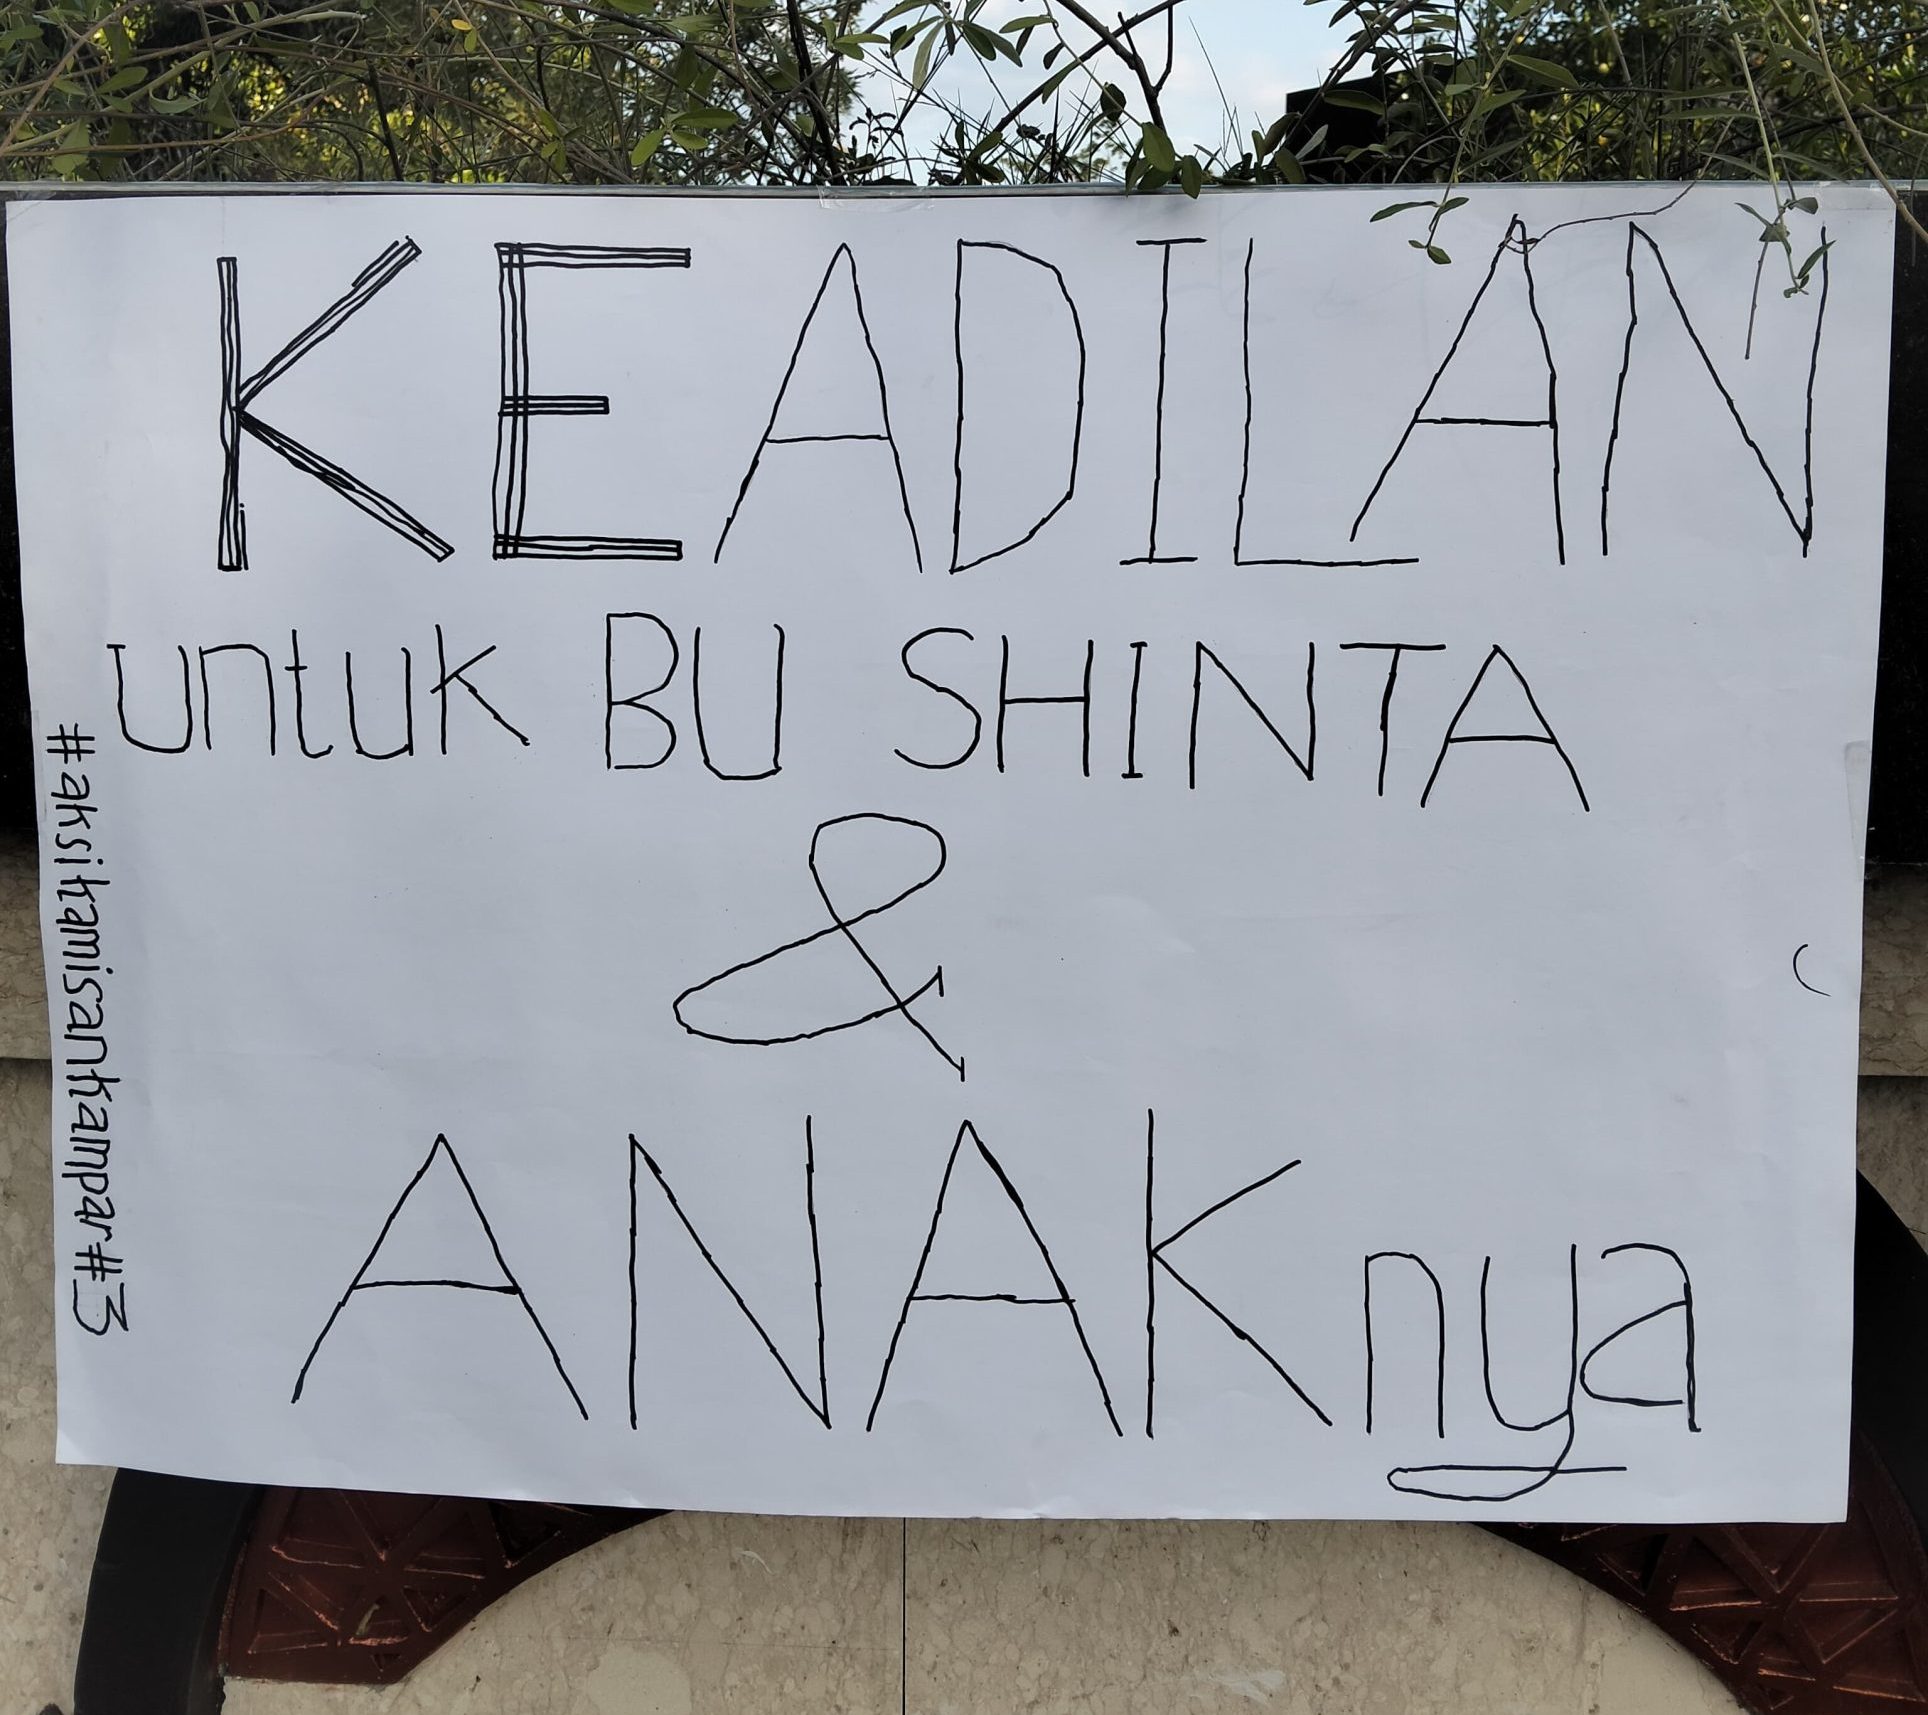 KEADILAN
untuk BU SHINTA
&
ANAKnya
#aksikamisankampar#3